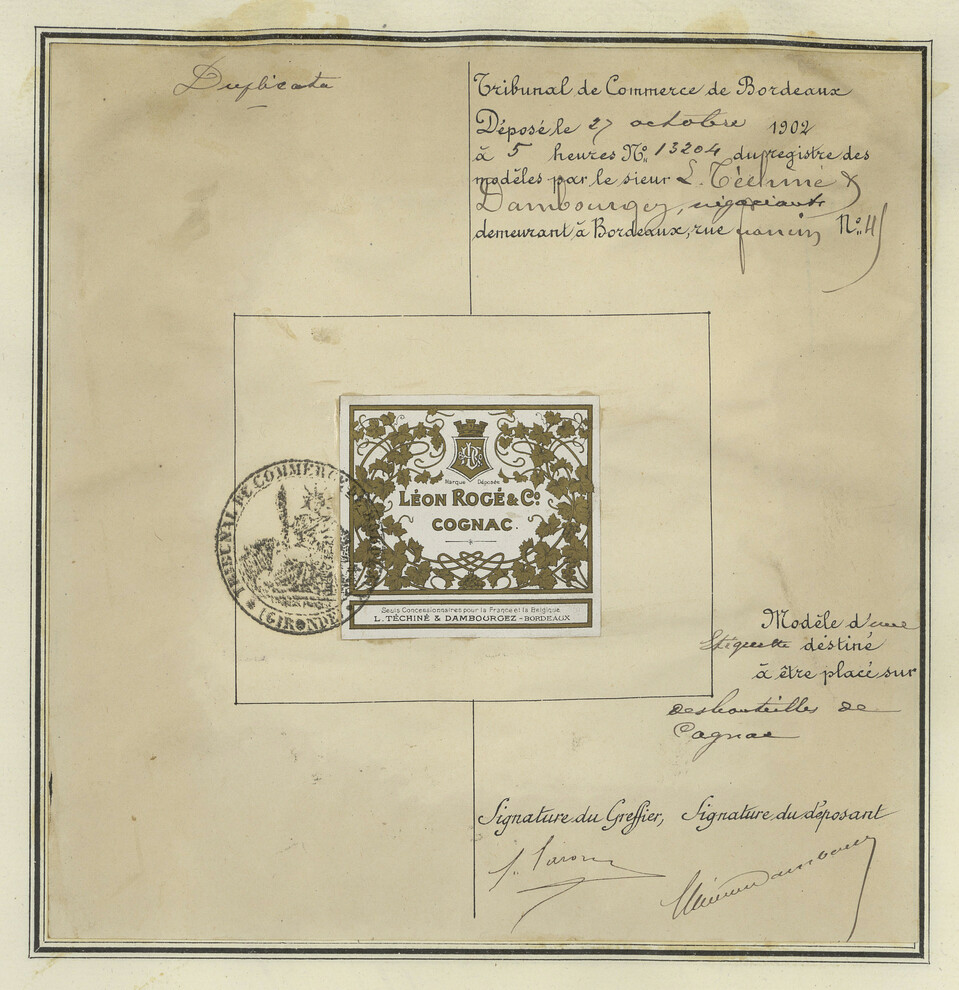 Duplicata
Tribunal de Commerce de Bordeaux
Déposé le 27 octobre 1902
à 5 heures No. 13204 du registre des
modèles par le sieur L. Téchiné &
Dambourgez, négociants
demeurant à Bordeaux, rue No. 4
Marque Déposée
LÉON ROGÉ & Co.
COGNAC.
Seuls Concessionnaires pour la France et la Belgique
L. TÉCHINÉ & DAMBOURGEZ - BORDEAUX
TRIBUNAL DE COMMERCE DE BORDEAUX
(GIRONDE)
Modèle d'une
étiquette déstiné
à être placé sur
des bouteilles de
Cognac
Signature du Greffier, Signature du déposant